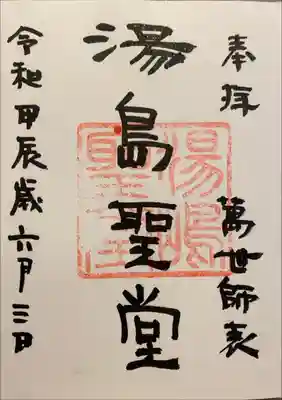 奉拝 萬世師表
湯島聖堂
令和甲辰歳六月三日
湯島聖堂